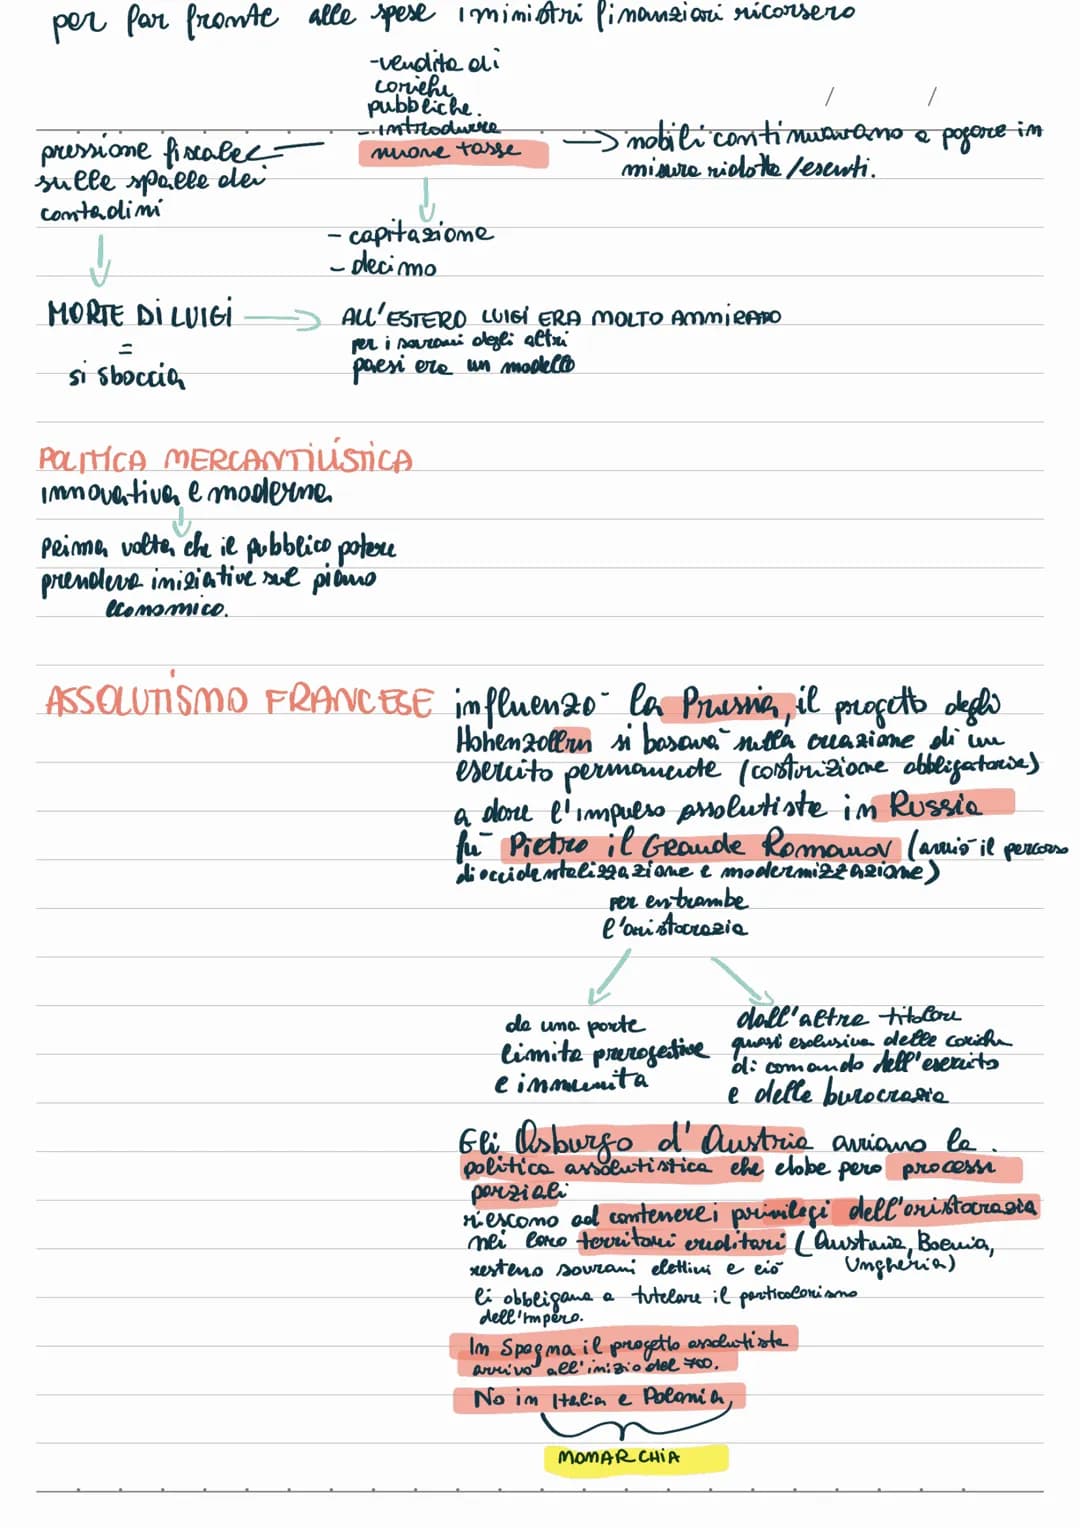 per far fronte alle spese i ministri finanziari ricorsero
-vendita di
cariche
pubbliche.
- introdurre
nuove tasse
pressione fiscale
sulle spalle dei
contadini
nobili continuavano a pagare in
misura ridotta /esenti.
- capitazione
- decimo
MORTE DI LUIGI
=
si sboccia
ALL'ESTERO LUIGI ERA MOLTO AMMIRATO
per i sovrani degli altri
paesi era un modello
POLITICA MERCANTILISTICA
innovativa e moderna
Prima volta che il pubblico potere
prendeva iniziative sul piano
economico.
ASSOLUTISMO FRANCESE
influenzò la Prussia, il progetto degli
Hohenzollern si basava sulla creazione di un
esercito permanente (costrizione obbligatoria)
a dare l'impulso assolutista in Russia
fu Pietro il Grande Romanov (avviò il percorso
di occidentalizzazione e modernizzazione)
per entrambe
l'aristocrazia
da una parte
limita prerogative
e immunità
dall'altra titolare
quasi esclusiva delle cariche
di comando dell'esercito
e delle burocrazia
Gli Asburgo d'Austria avviano la
politica assolutistica che ebbe però processi
parziali
riescono ad contenere i privilegi dell'aristocrazia
nei loro territori ereditari (Austria, Boemia,
Ungheria)
restano sovrani elettivi e ciò
li obbligava a tutelare il particolarismo
dell'impero.
In Spagna il progetto assolutista
arrivò all'inizio del 700.
No in Italia e Polonia,
MONARCHIA